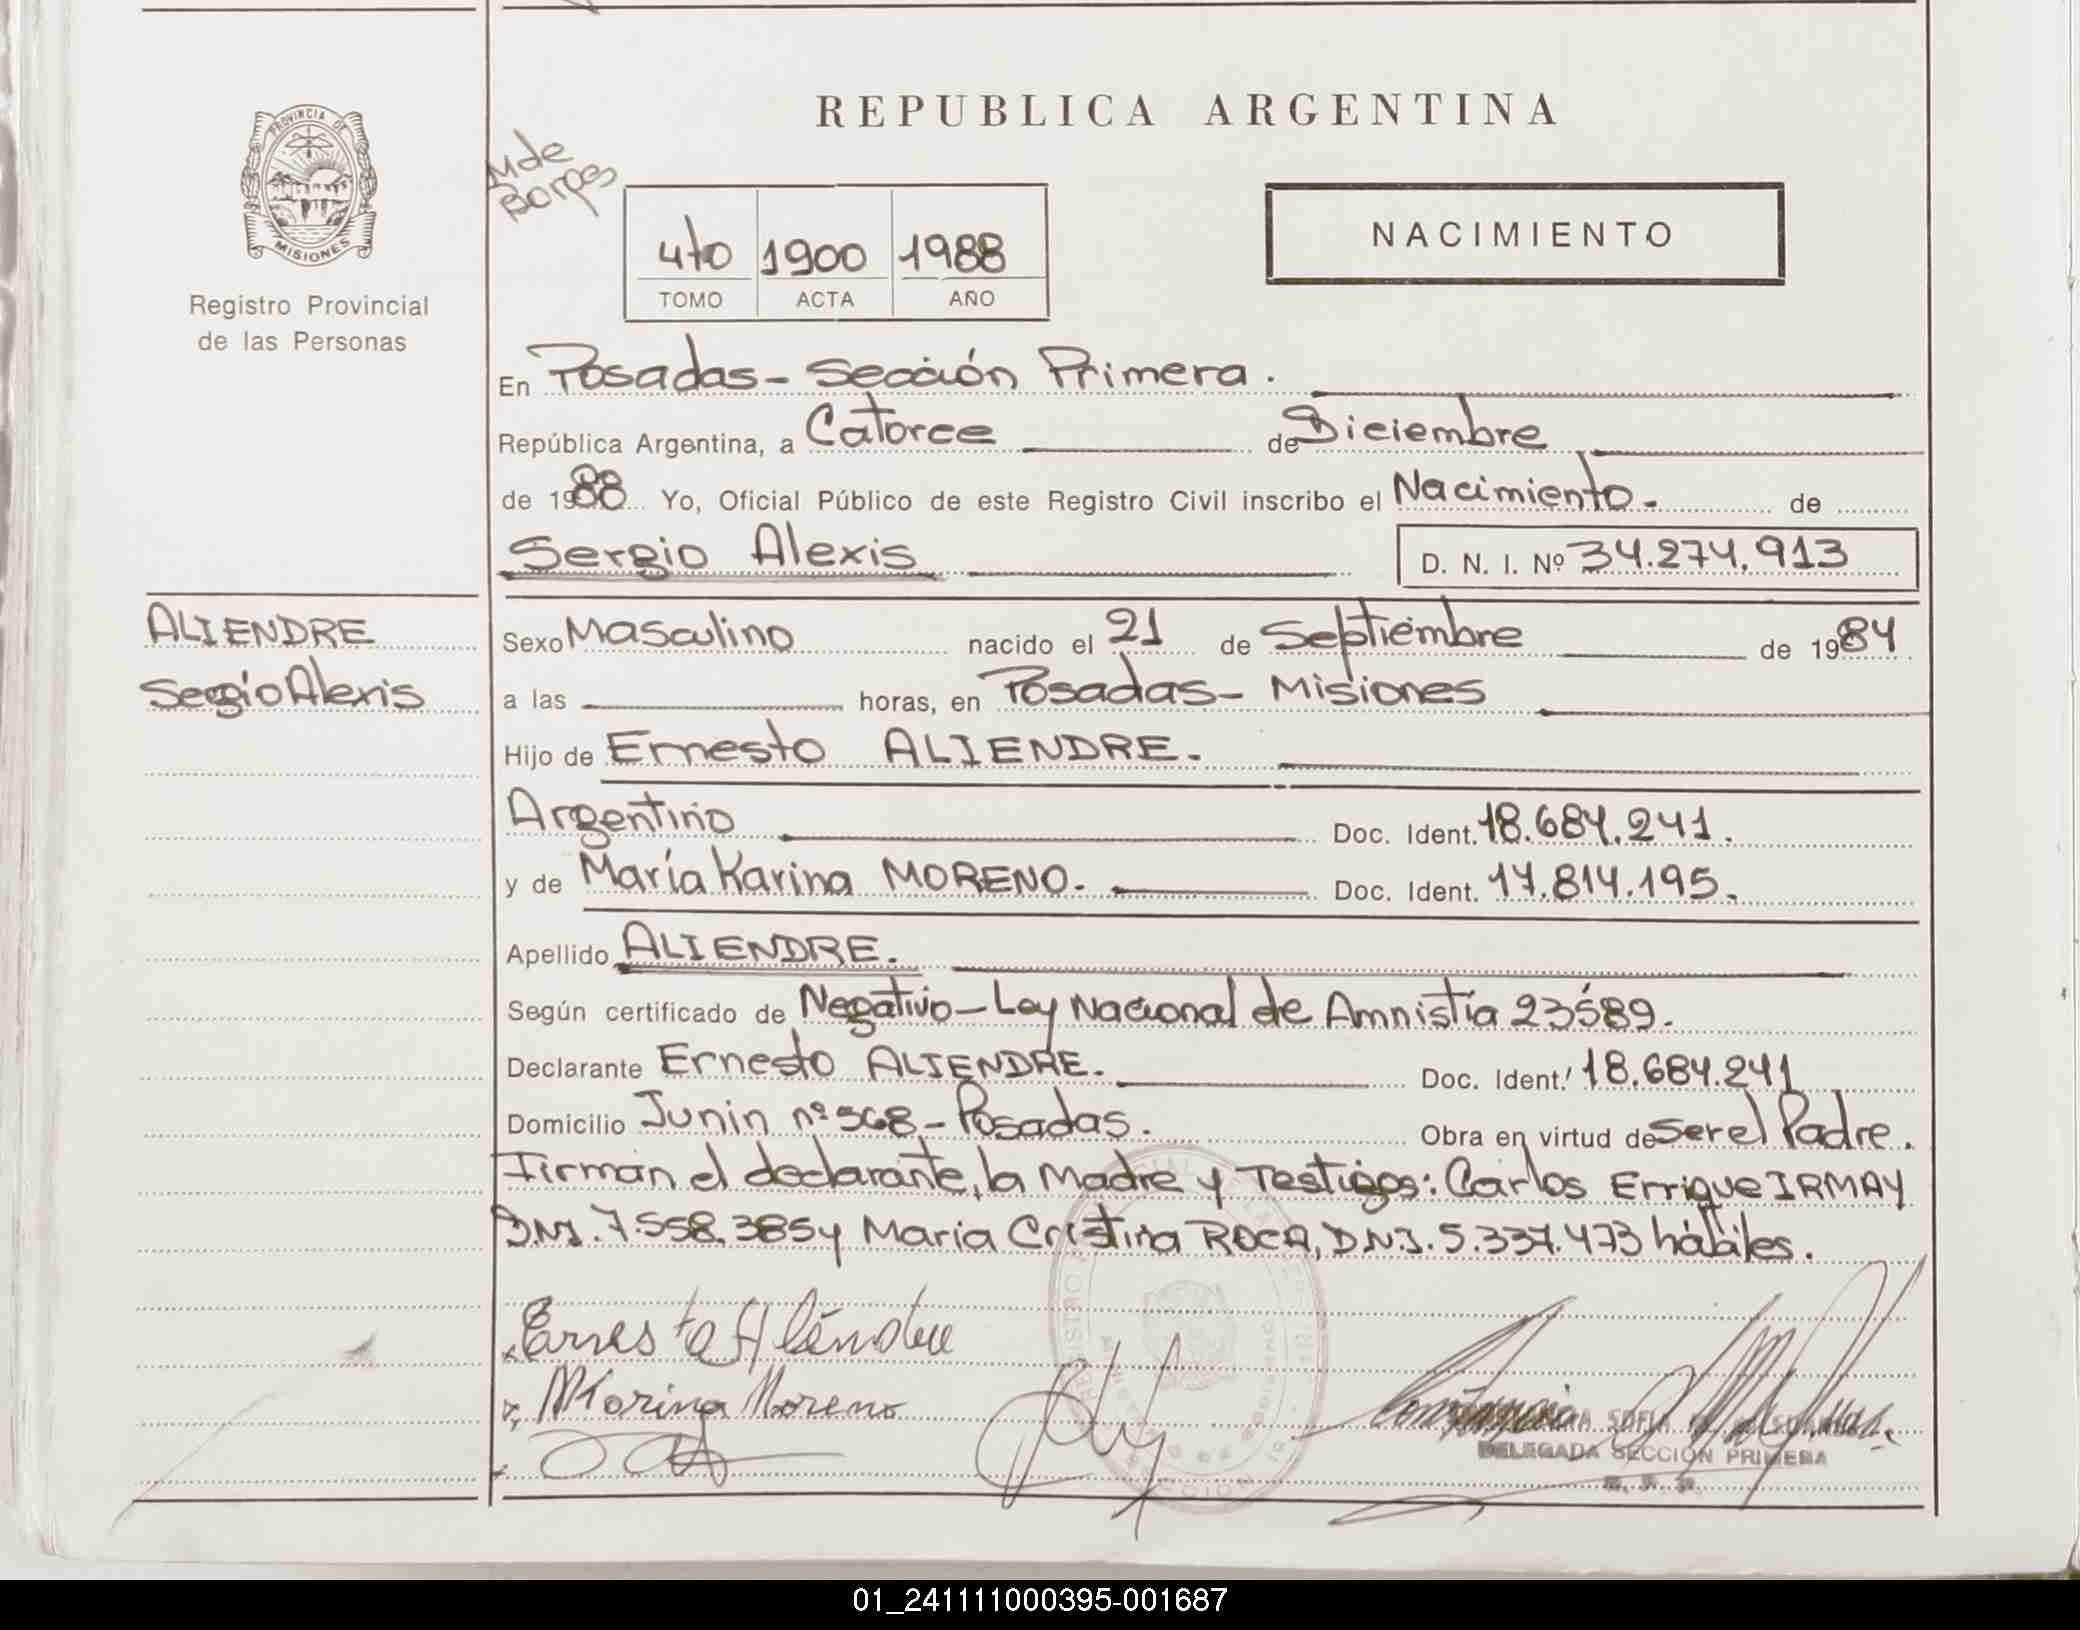 REPUBLICA ARGENTINA
PROVINCIA DE
MISIONES
Registro Provincial
de las Personas
M de
Borges
4to 1900 1988
TOMO ACTA AÑO
NACIMIENTO
En Posadas - Sección Primera.
República Argentina, a Catorce de Diciembre
de 1988 Yo, Oficial Público de este Registro Civil inscribo el Nacimiento. de
Sergio Alexis D. N. I. Nº 34.274.913
ALIENDRE
Sergio Alexis
Sexo Masculino nacido el 21 de Septiembre de 1984
a las horas, en Posadas - Misiones
Hijo de Ernesto ALIENDRE.
Argentino Doc. Ident. 18.684.241.
y de María Karina MORENO. Doc. Ident. 17.814.195.
Apellido ALIENDRE.
Según certificado de Negativo - Ley Nacional de Amnistía 23589.
Declarante Ernesto ALIENDRE. Doc. Ident. 18.684.241
Domicilio Junin nº 368 - Posadas. Obra en virtud de ser el Padre.
Firman el declarante, la Madre y Testigos: Carlos Enrique IRMAY
D.N.I. 7.558.385 y Maria Cristina ROCA, D.N.I. 5.337.473 hábiles.
Ernesto Aliendre
MKarina Moreno
SOFIA
DELEGADA SECCION PRIMERA
01_241111000395-001687